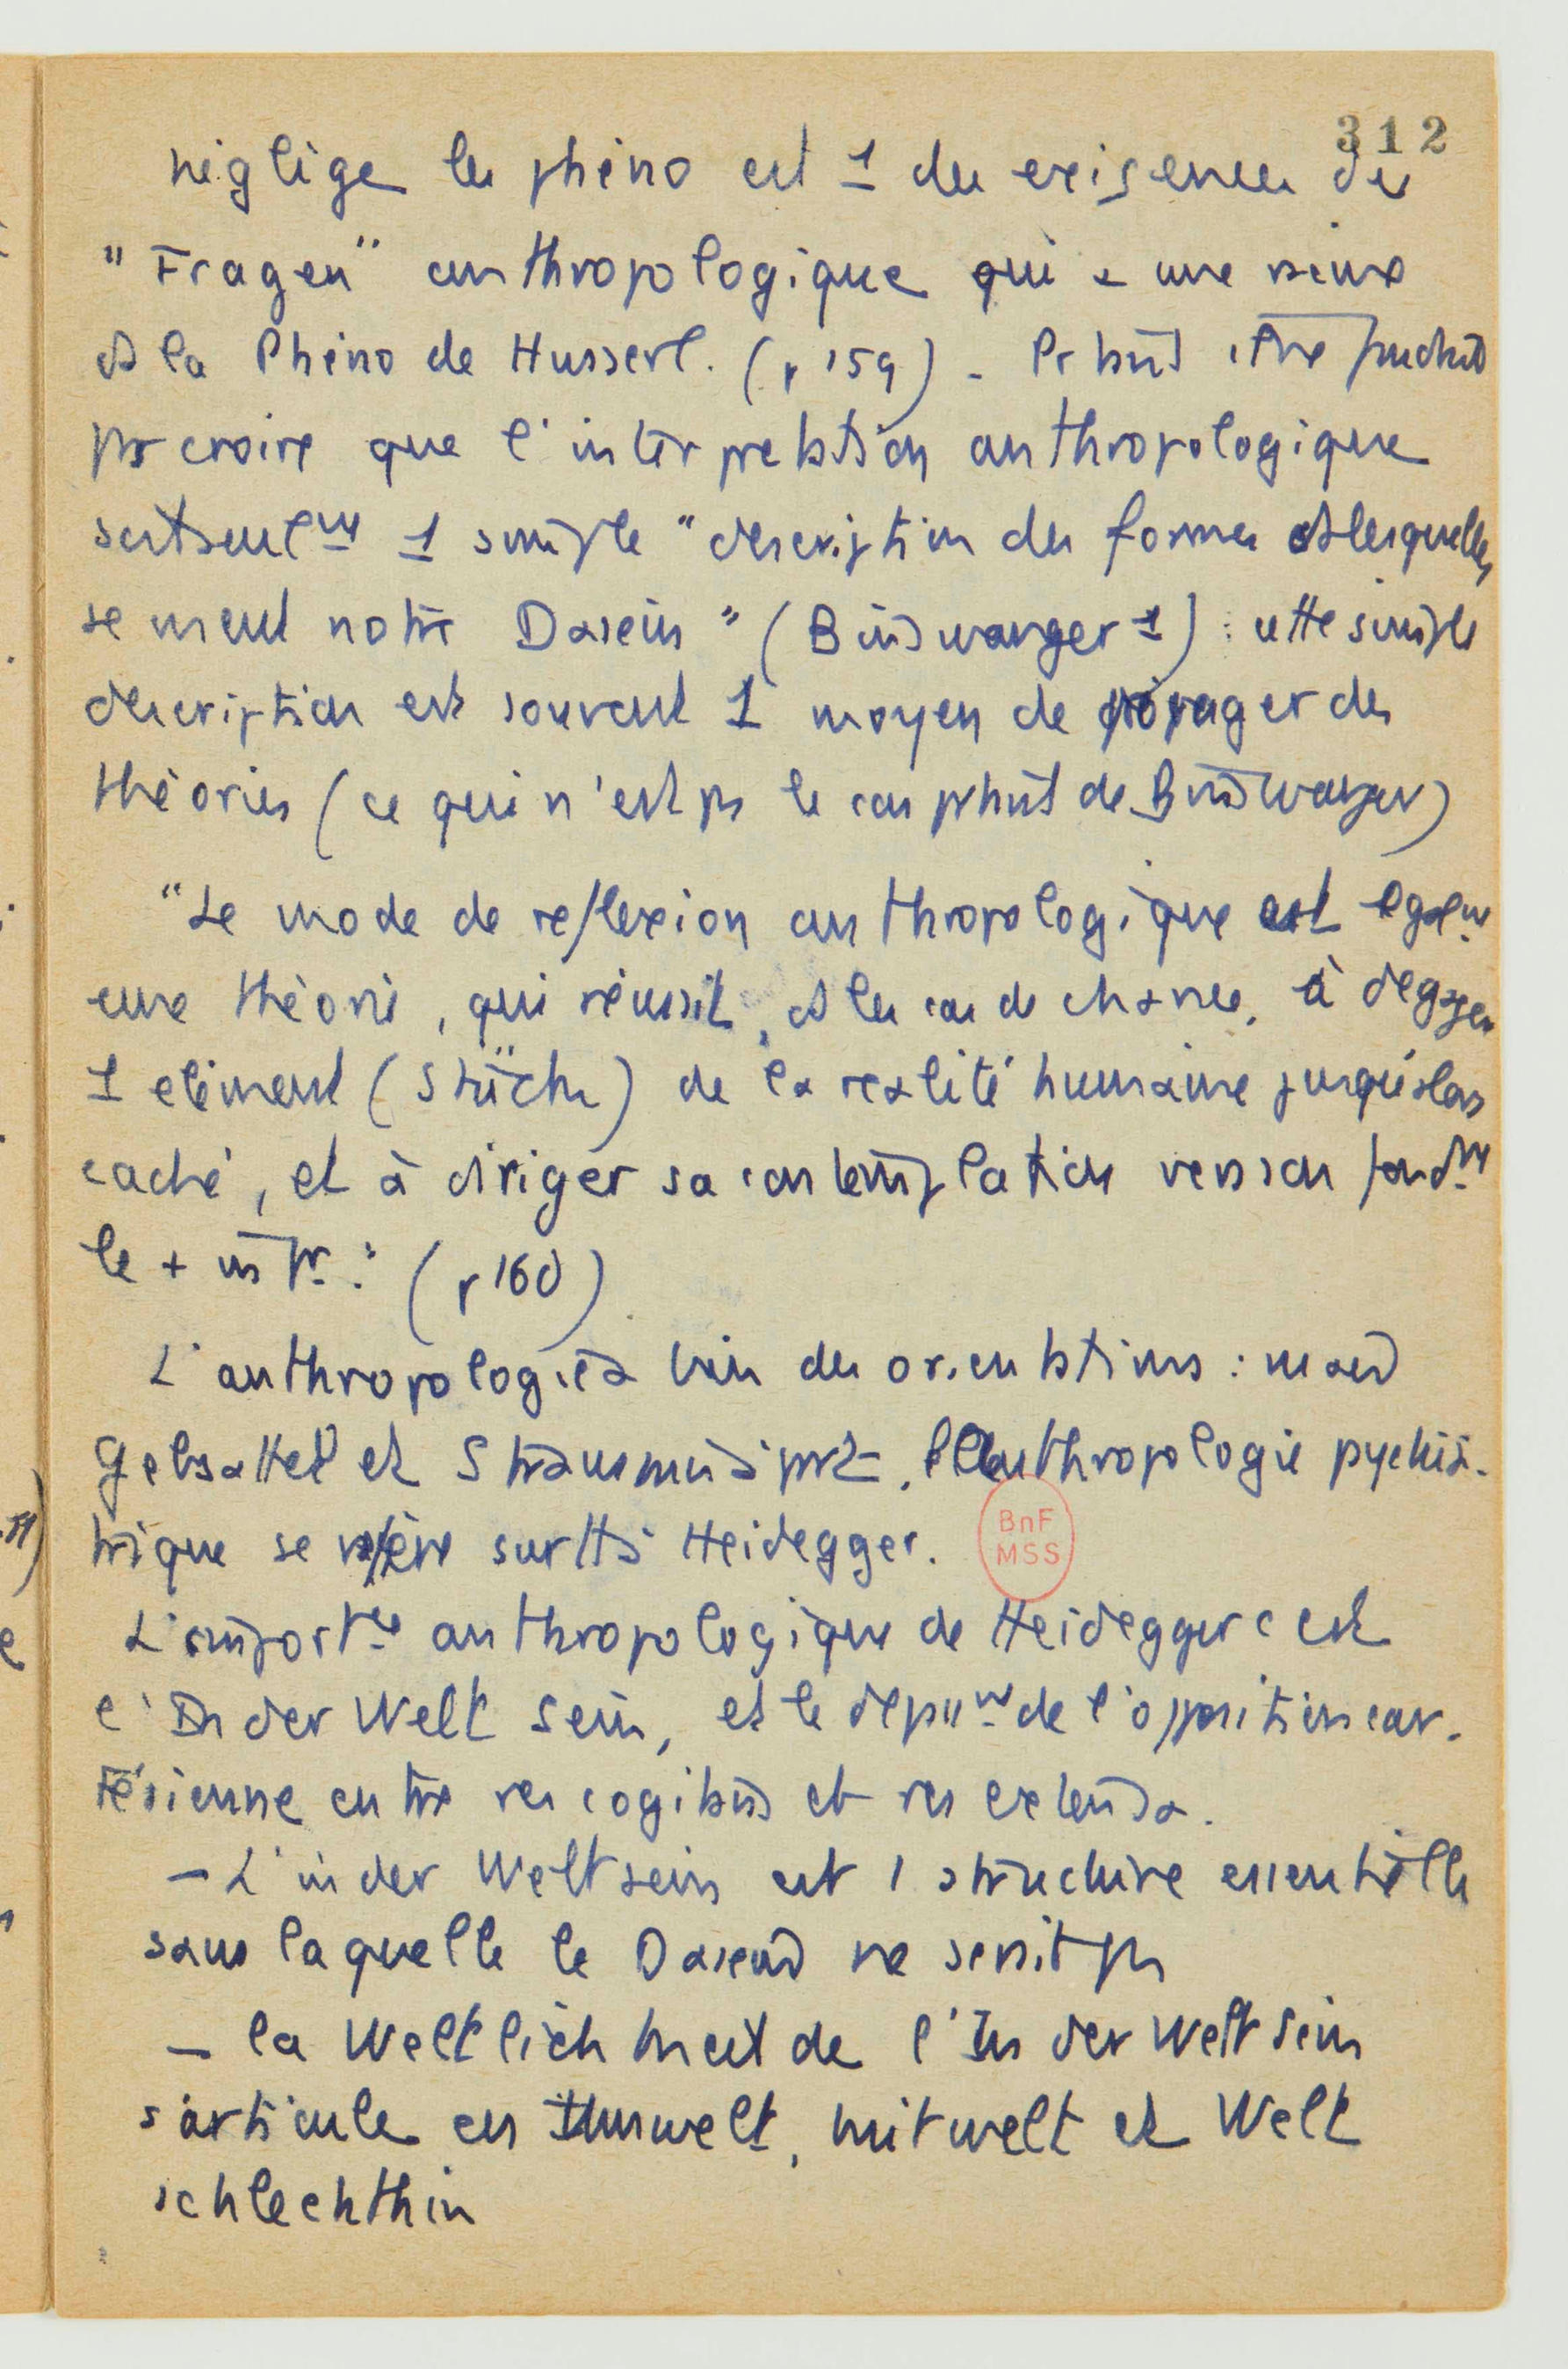 312
néglige les phéno est 1 des exigences des
"Fragen" anthropologique qui a une racine
ds la Phéno de Husserl. (p 159) - être prudent
pr croire que l'interprétation anthropologique
soit seulmt 1 simple "description des formes ds lesquelles
se meut notre Dasein" (Binswanger 1) : cette simple
description est souvent 1 moyen de propager des
théories (ce qui n'est ps le cas de Binswanger)
"Le mode de réflexion anthropologique est égalmt
une théorie, qui réussit, ds les cas de chance, à dégager
1 élément (Stück) de la réalité humaine jusqu'alors
caché, et à diriger sa contemplation vers son fondmt
le + (p 160)
L'anthropologie a bien des orientations : mais
Gebsattel et Straus mis à part, l'anthropologie psychia-
trique se réfère surtt à Heidegger.
L'importce anthropologique de Heidegger c est
l'In der Welt sein, et le dépassmt de l'opposition car-
tésienne entre res cogitans et res extensa.
- L'in der Welt sein est 1 structure essentielle
sans laquelle le Dasein ne serait ps
- la Weltlichkeit de l'In der Welt sein
s'articule en Umwelt, mitwelt et Welt
schlechthin
BnF
MSS